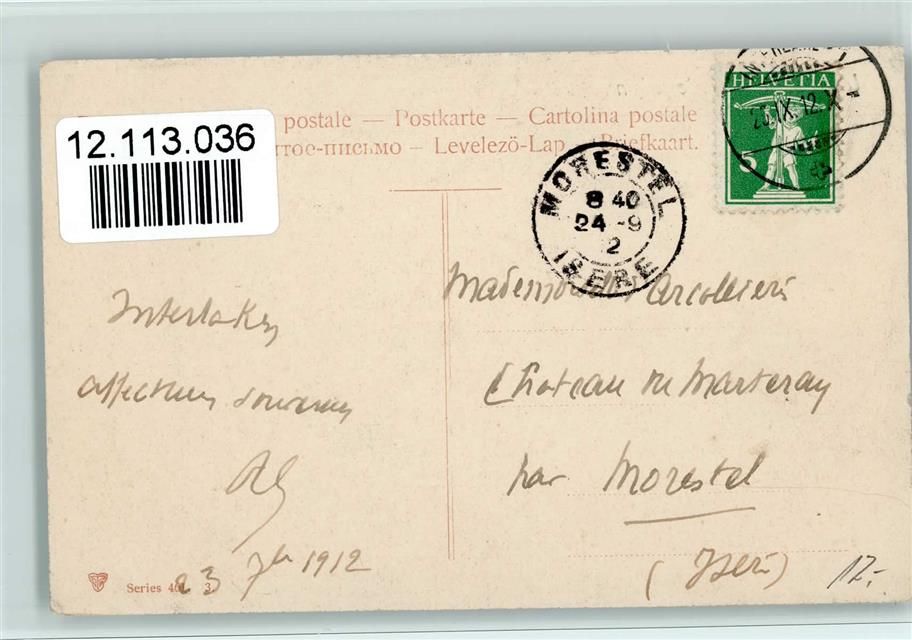 12.113.036
postale — Postkarte — Cartolina postale
тое-письмо – Levelező-Lap – Briefkaart.
HELVETIA
5
23.IX.12.X
MORESTEL
8 40
24 -9
12
ISERE
Interlaken
affectueux souvenir
23 7bre 1912
Mademoiselle Arcollières
Château du Marteray
par Morestel
(Isère)
Series 461 3.
12.-